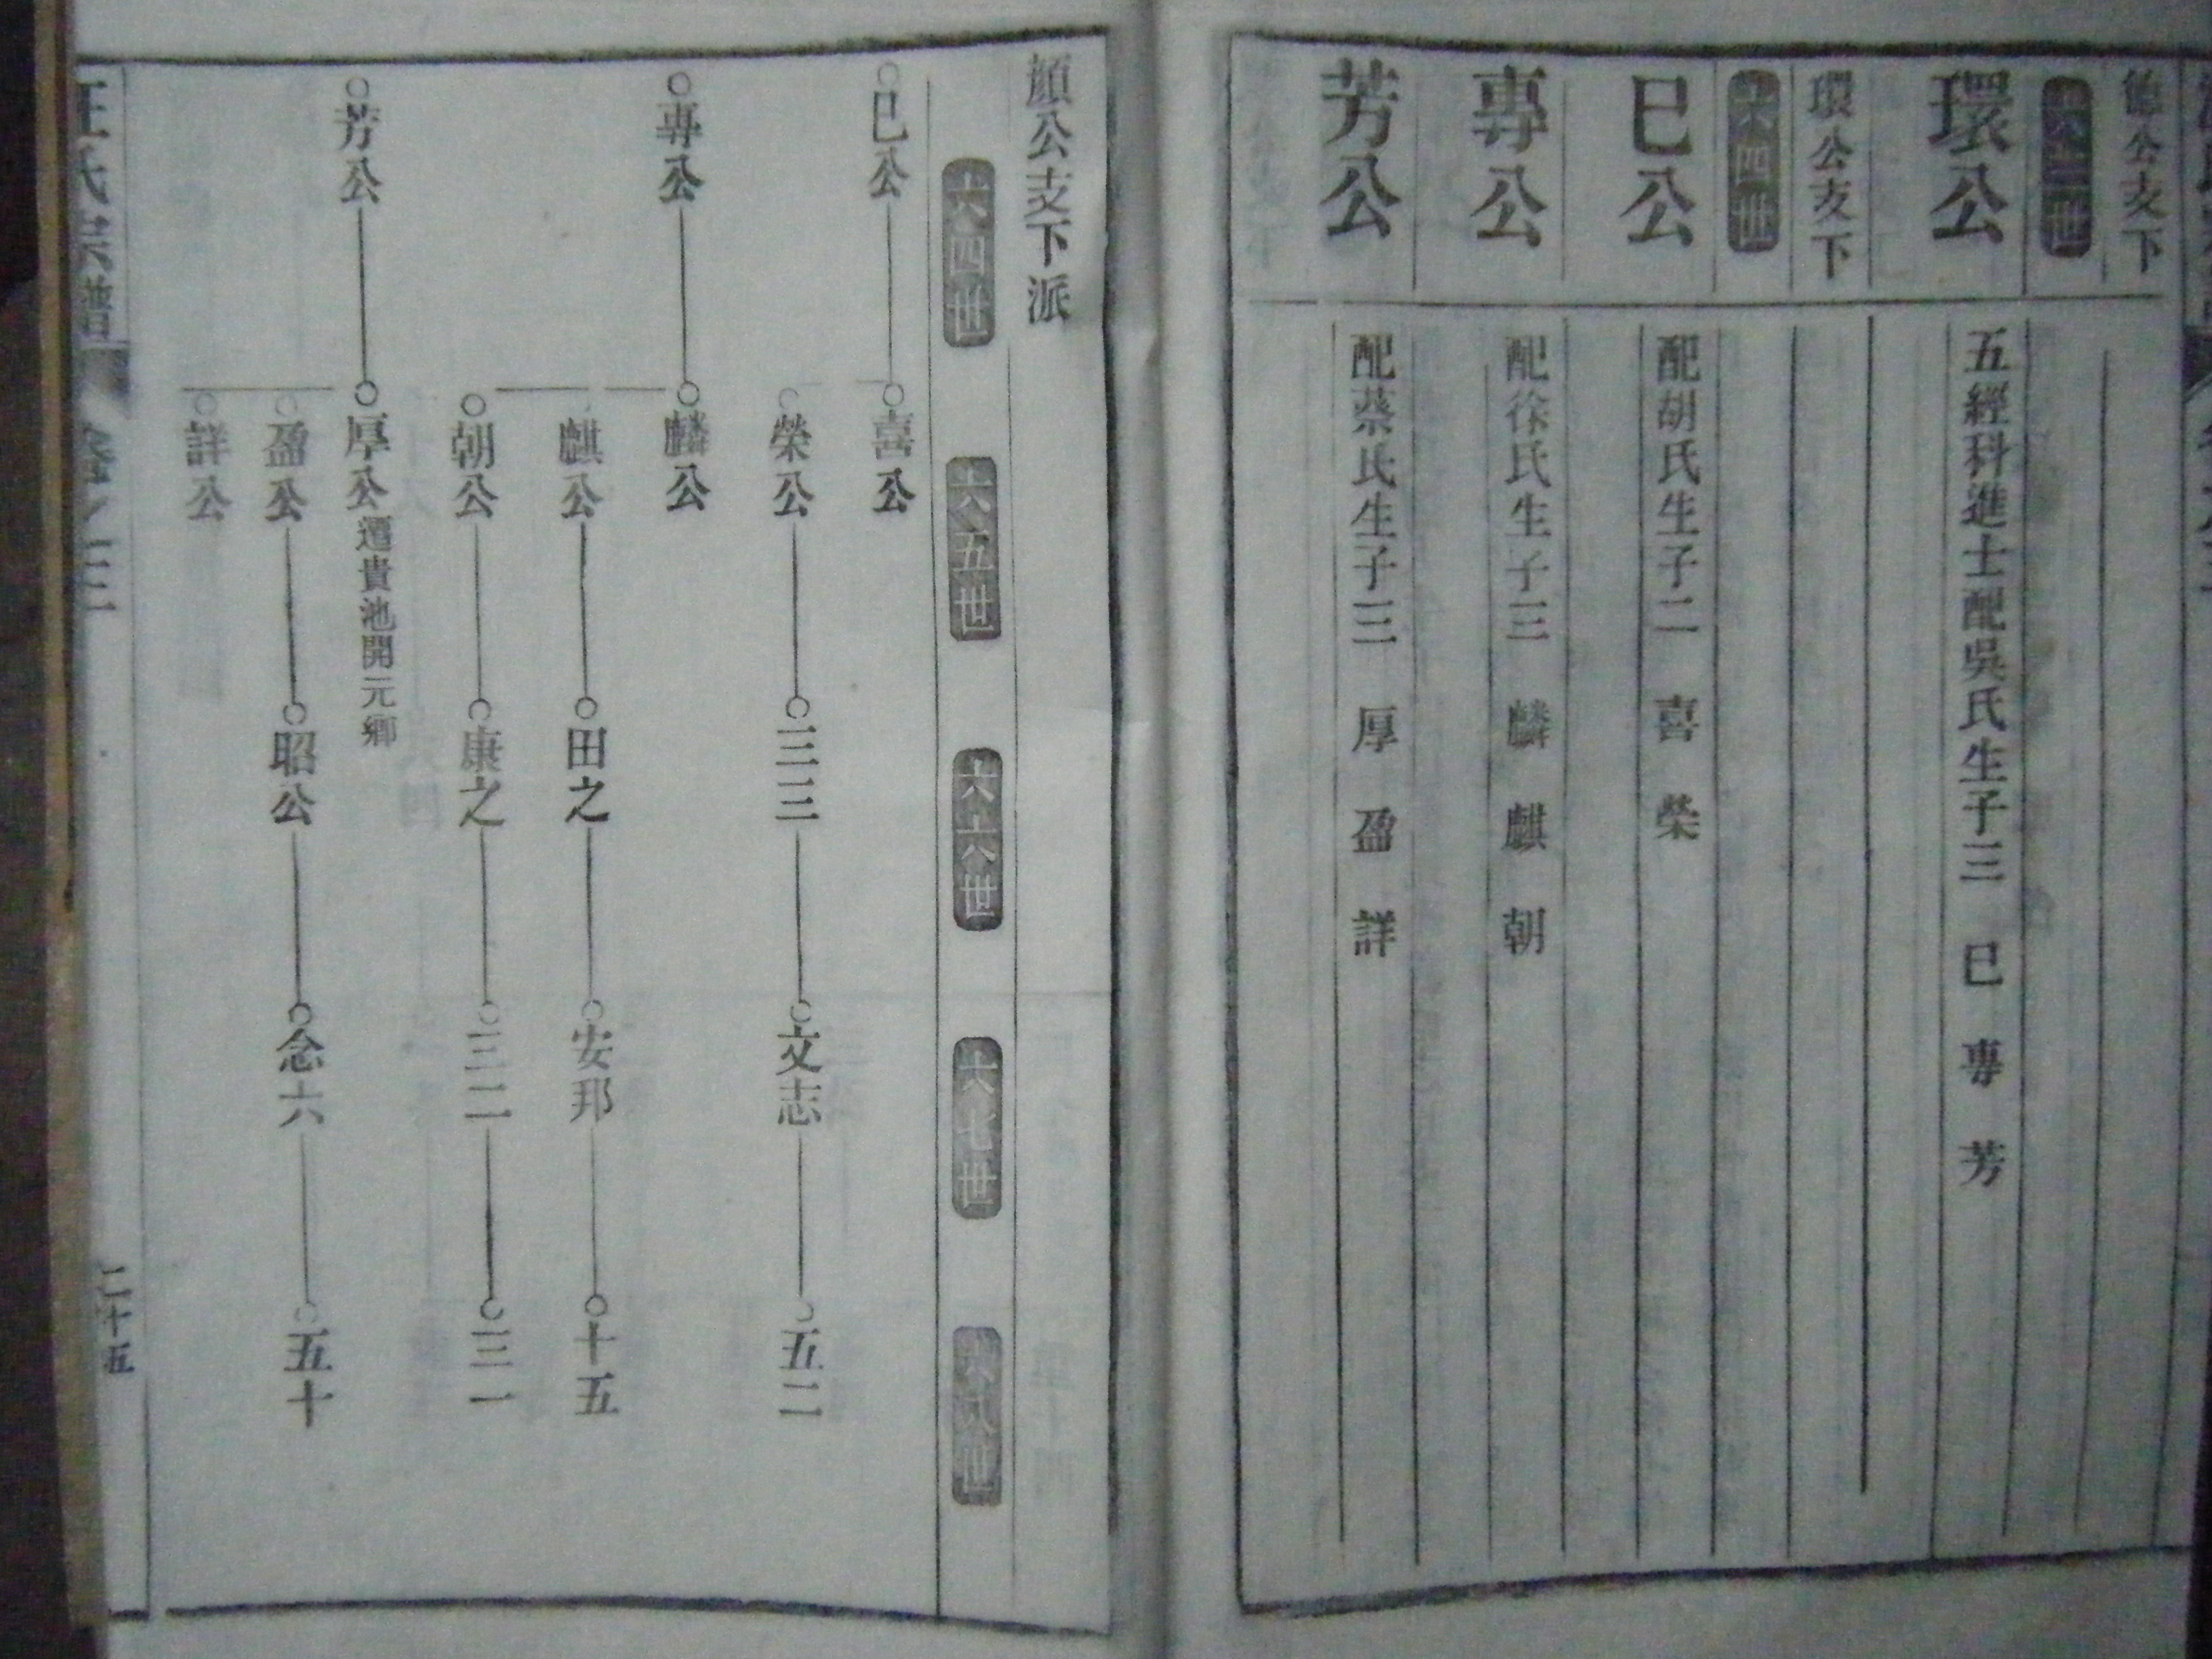 公支下
六三世
環公 五經科進士配吳氏生子三 巳 專 芳
環公支下
六四世
巳公 配胡氏生子二 喜 榮
專公 配徐氏生子三 麟 麒 朝
芳公 配蔡氏生子三 厚 盈 詳
顏公支下派
六四世 六五世 六六世 六七世 六八世
巳公 喜公
榮公 三三 文志 五二
專公 麟公
麒公 田之 安邦 十五
朝公 康之 三二 三一
芳公 厚公 遷貴池開元鄉
盈公 昭公 念六 五十
詳公
氏宗譜 卷之三 二十五